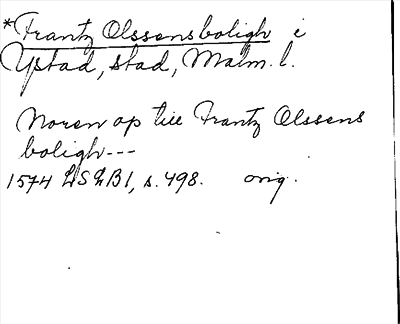 *Frantz Olssens boligh i
Ystad, stad, Malm. l.
Noren op till Frantz Olssens
boligh---
1574 LSÆB1, s. 498. orig.